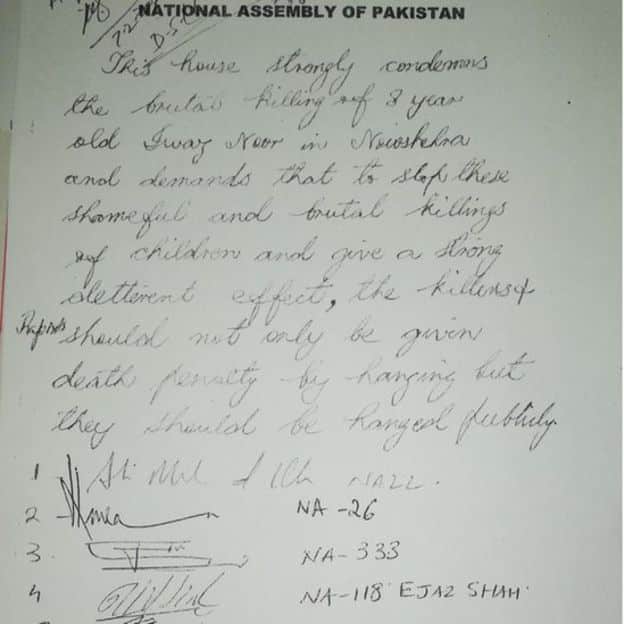 NATIONAL ASSEMBLY OF PAKISTAN
This house strongly condemns
the brutal killing of 8 year
old Iwaz Noor in Nowshehra
and demands that to stop these
shameful and brutal killings
of children and give a strong
detterent effect, the killers &
Rapists should not only be given
death penalty by hanging but
they should be hanged publicly.
1
2 NA-26
3. NA-333
4 NA-118 EJAZ SHAH